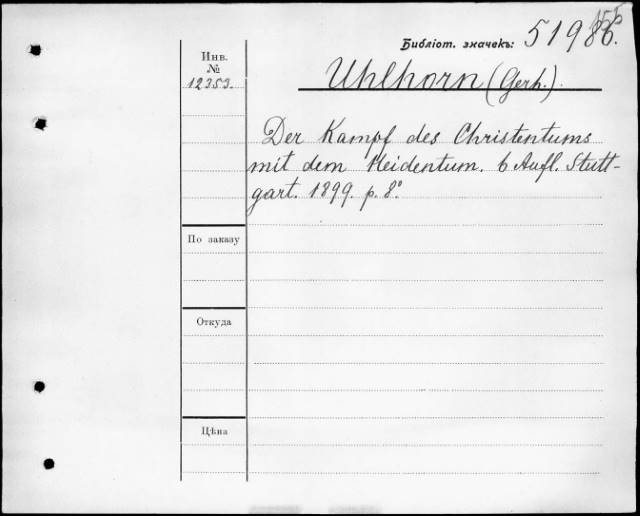 155
Библіот. значекъ: 51986.
Инв.
№
12353.
Uhlhorn (Gerh.).
Der Kampf des Christentums
mit dem Heidentum. 6 Aufl. Stutt-
gart. 1899. p. 8°.
По заказу
Откуда
Цѣна